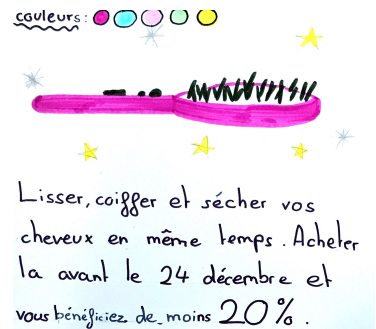 couleurs:
Lisser, coiffer et sécher vos
cheveux en même temps. Acheter
la avant le 24 décembre et
vous bénéficiez de moins 20%.